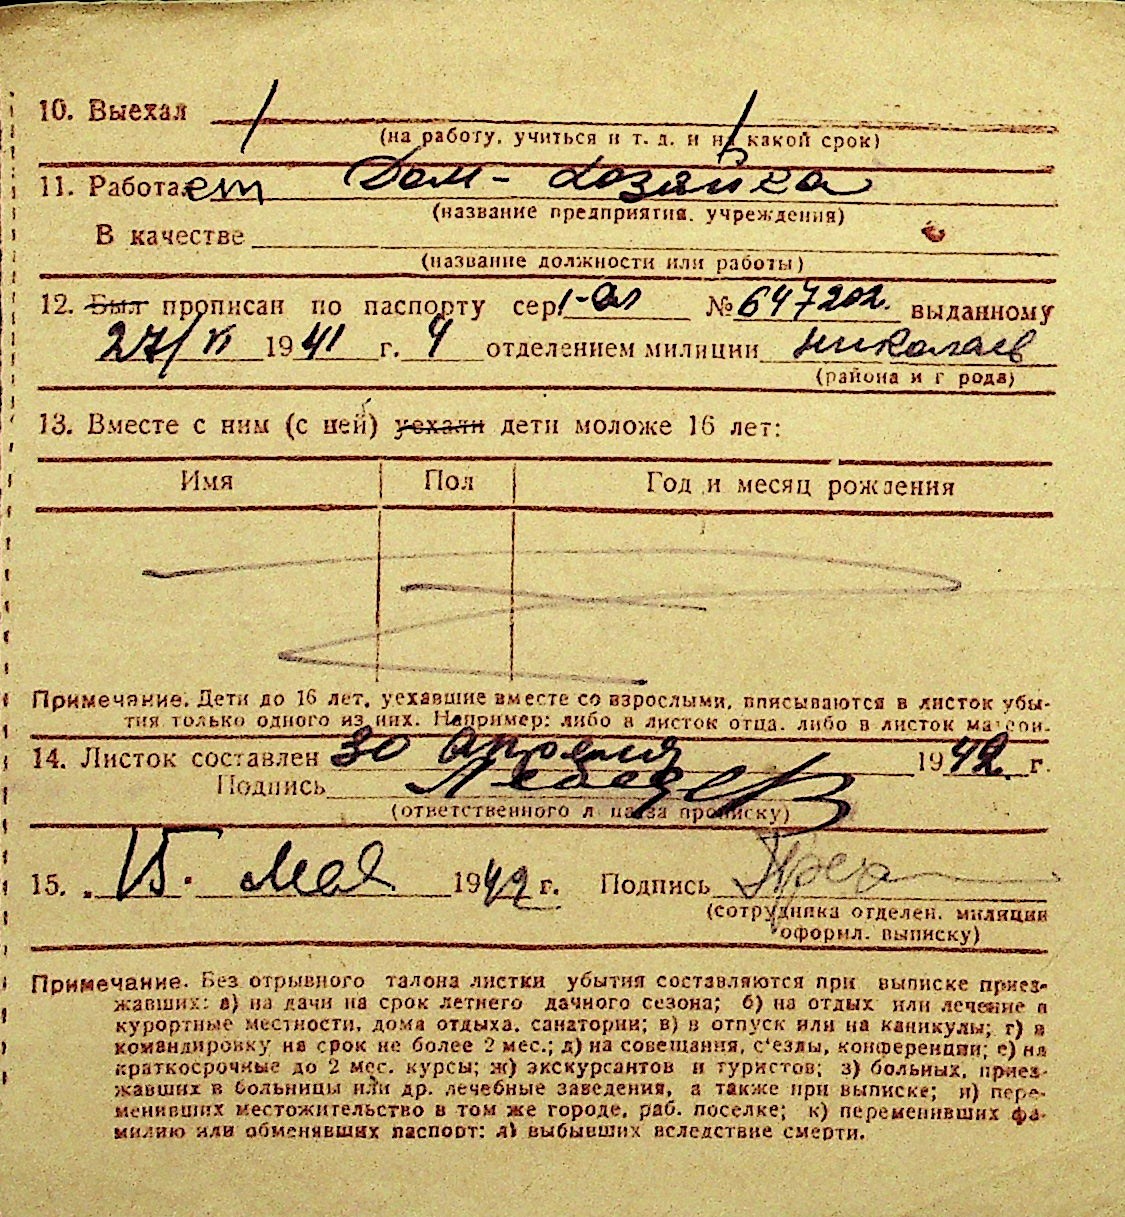 10. Выехал
(на работу, учиться и т. д. и на какой срок)
11. Работает Дом-хозяйка
(название предприятия, учреждения)
В качестве
(название должности или работы)
12. Был прописан по паспорту сер. № 647202 выданному
27/VI 1941 г. 4 отделением милиции Николаев
(района и города)
13. Вместе с ним (с ней) уехали дети моложе 16 лет:
Имя Пол Год и месяц рождения
Примечание. Дети до 16 лет, уехавшие вместе со взрослыми, вписываются в листок убы-
тия только одного из них. Например: либо в листок отца, либо в листок матери.
14. Листок составлен 30 апреля 1942 г.
Подпись Лебедев
(ответственного лица за прописку)
15. 15. Мая 1942 г. Подпись
(сотрудника отделен. милиции
оформл. выписку)
Примечание. Без отрывного талона листки убытия составляются при выписке приез-
жавших: а) на дачи на срок летнего дачного сезона; б) на отдых или лечение в
курортные местности, дома отдыха, санатории; в) в отпуск или на каникулы; г) в
командировку на срок не более 2 мес.; д) на совещания, с'езды, конференции; е) на
краткосрочные до 2 мес. курсы; ж) экскурсантов и туристов; з) больных, приез-
жавших в больницы или др. лечебные заведения, а также при выписке; и) пере-
менивших местожительство в том же городе, раб. поселке; к) переменивших фа-
милию или обменявших паспорт; л) выбывших вследствие смерти.